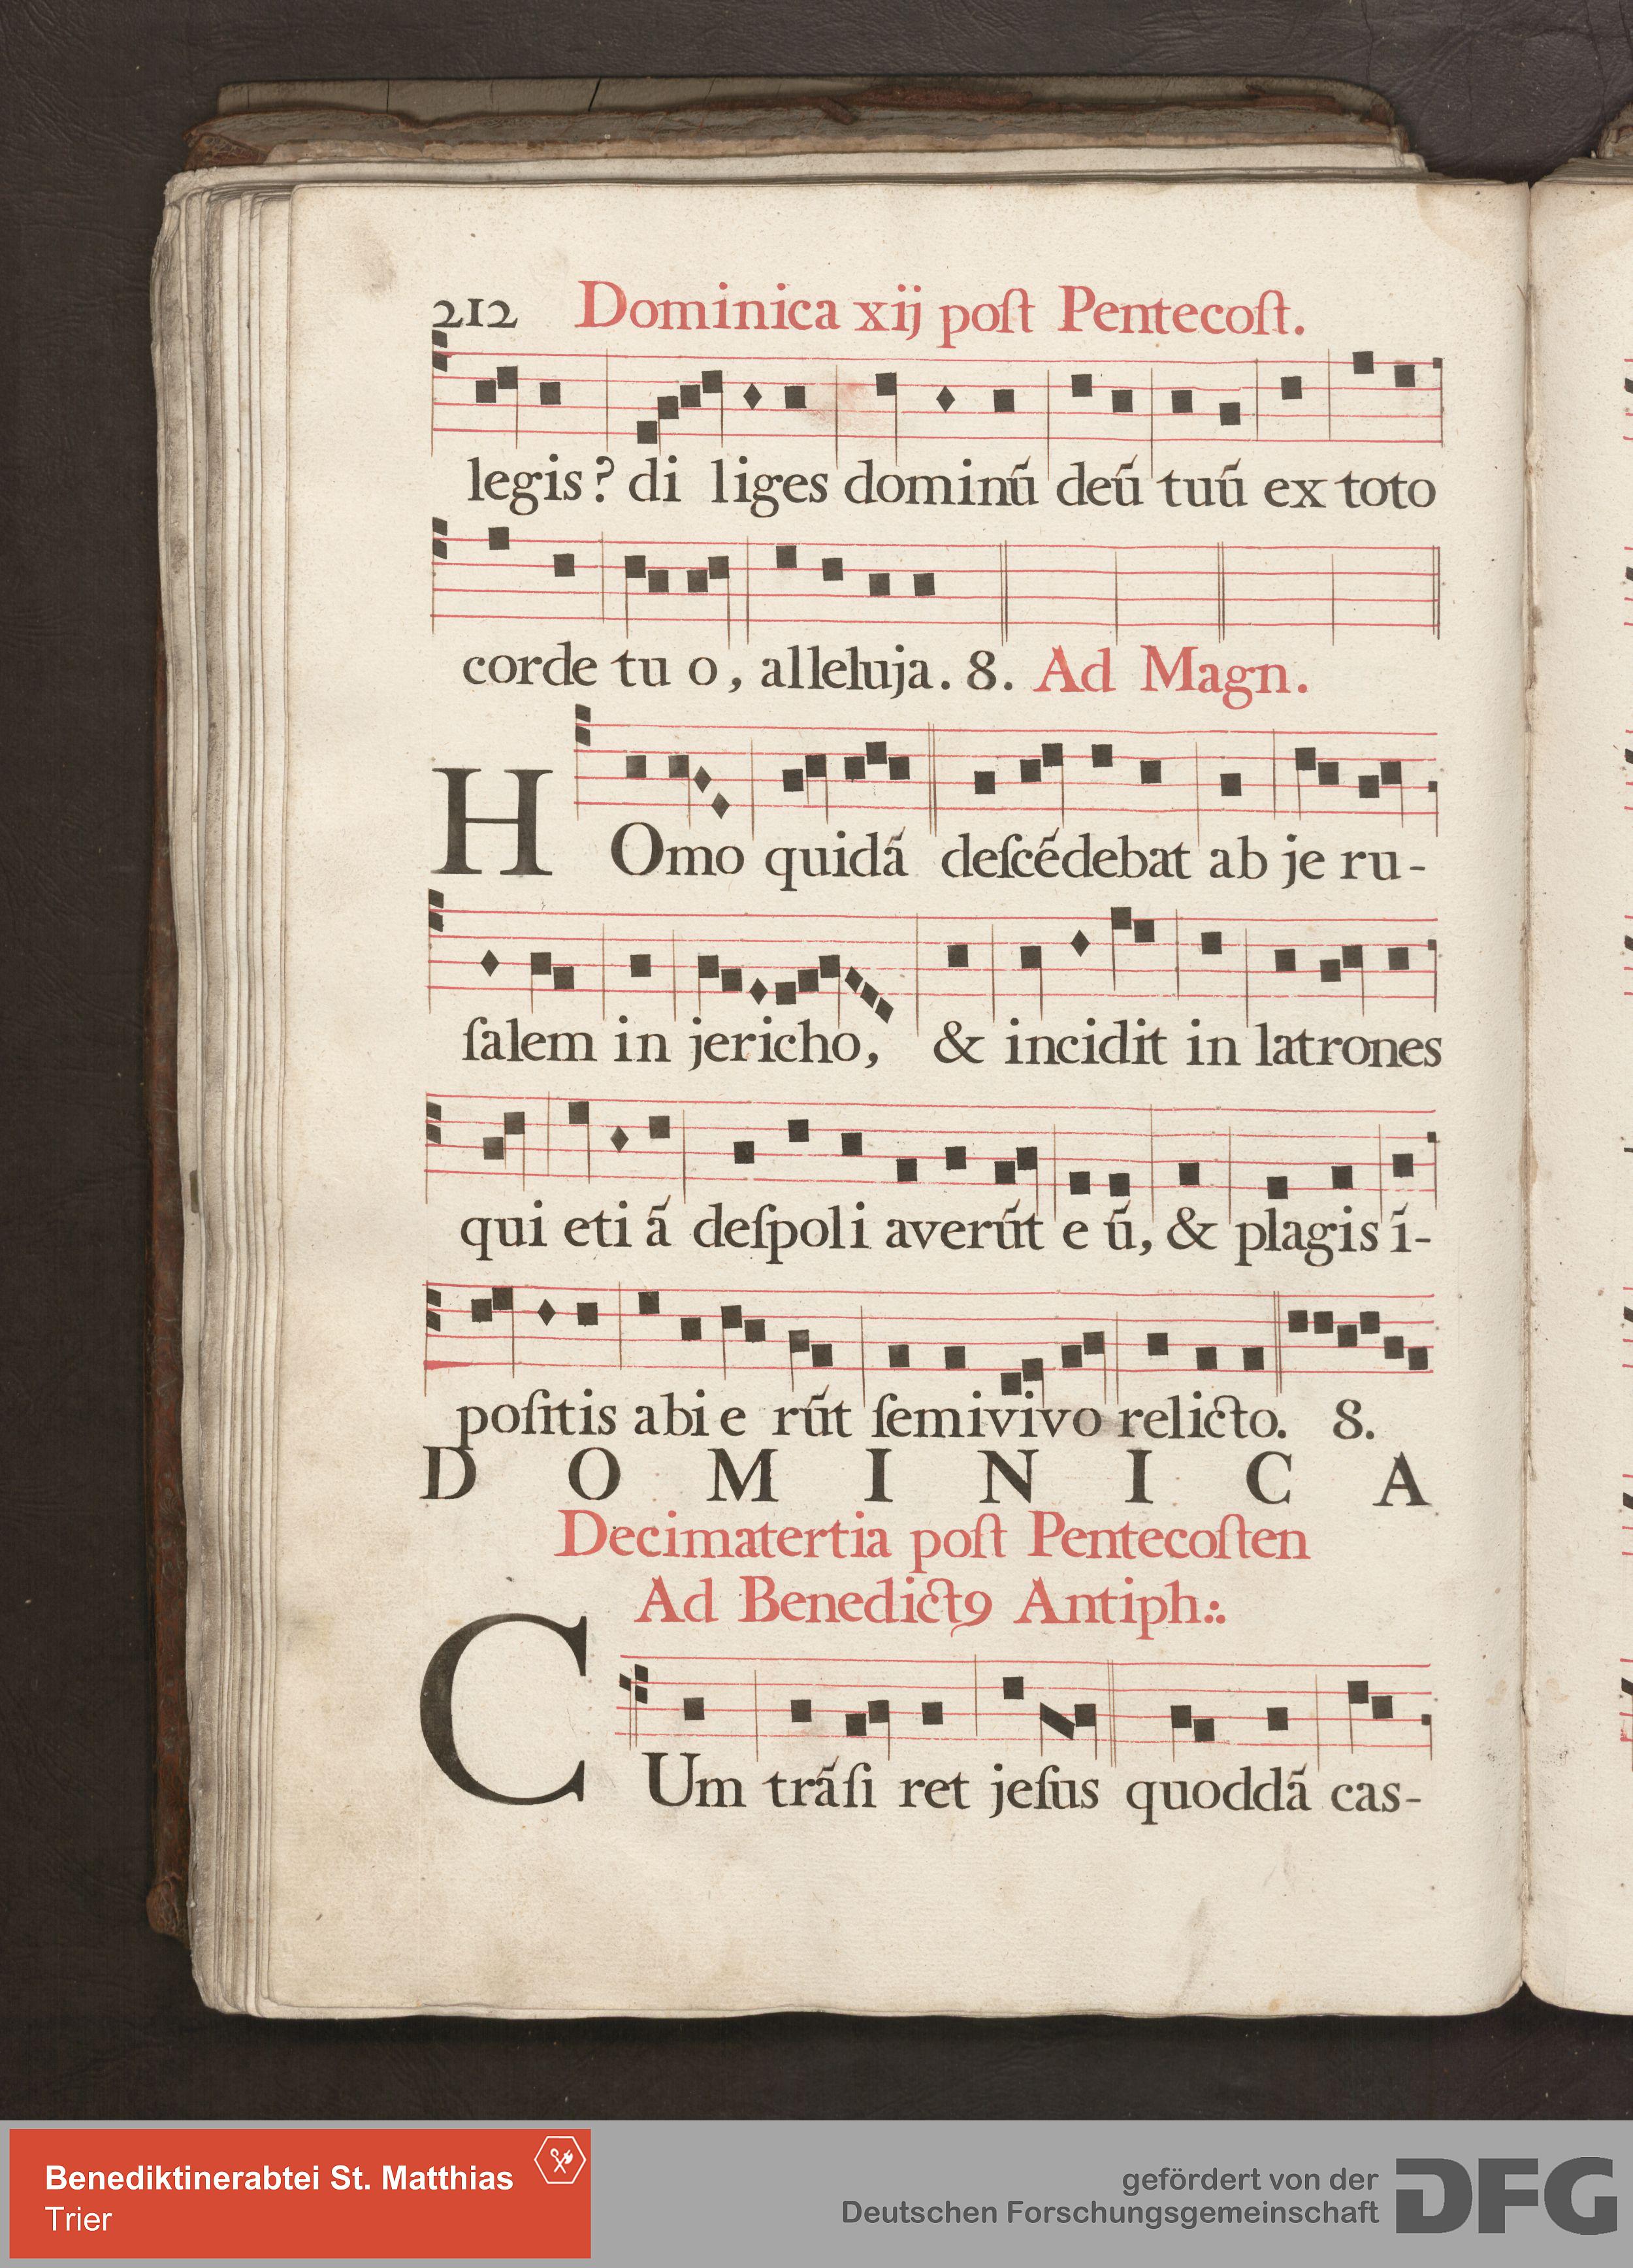 212 Dominica xij poſt Pentecoſt.
legis? di liges dominú̃ deú̃ tuú̃ ex toto
corde tu o, alleluja. 8. Ad Magn.
H Omo quidá̃ deſcé̃debat ab je ru-
ſalem in jericho, & incidit in latrones
qui eti á̃ deſpoli averú̃t e ú̃, & plagis í̃-
poſitis abi e rú̃t ſemivivo relicto. 8.
D O M I N I C A
Decimatertia poſt Pentecoſten
Ad Benedict9 Antiph:.
C Um trá̃ſi ret jeſus quoddá̃ cas-
Benediktinerabtei St. Matthias
Trier
gefördert von der
Deutschen Forschungsgemeinschaft
DFG